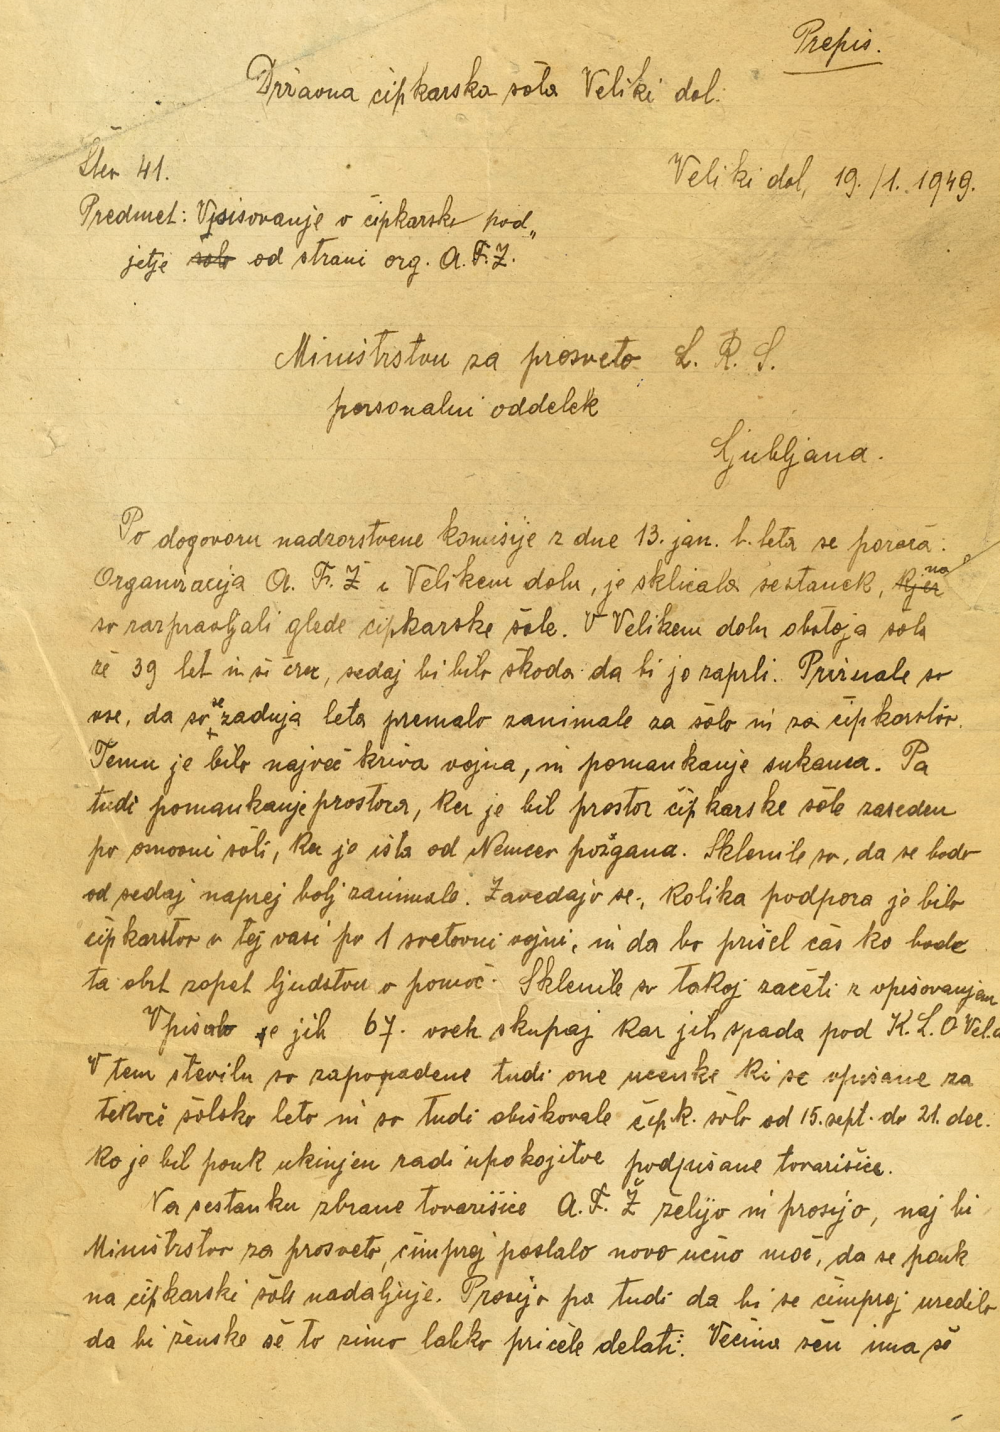 Prepis.
Državna čipkarska šola Veliki dol.
Štev 41.
Veliki dol, 19./1. 1949.
Predmet: Vpisovanje v čipkarsko pod„
jetje šolo od strani org. A.F.Ž.
Ministrstvu za prosveto L. R. S.
personalni oddelek
Ljubljana.
Po dogovoru nadzorstvene komisije z dne 13. jan. t. leta se poroča:
Organizacija A. F. Ž v Velikem dolu, je sklicala sestanek, kjer na
so razpravljali glede čipkarske šole. V Velikem dolu obstoja šola
že 39 let in si čez, sedaj bi bilo škoda da bi jo zaprli. Priznale so
vse, da so se zadnja leta premalo zanimale za šolo in za čipkarstvo.
Temu je bilo največ kriva vojna, in pomankanje sukanca. Pa
tudi pomankanje prostora, ker je bil prostor čipkarske šole zaseden
po osnovni šoli, ker je išla od Nemcev požgana. Sklenile so, da se bodo
od sedaj naprej bolj zanimale. Zavedajo se, kolika podpora je bilo
čipkarstvo v tej vasi po 1 svetovni vojni, in da bo prišel čas ko bode
ta obrt zopet ljudstvu v pomoč. Sklenile so takoj začeti z vpisovanjem
Vpisalo se je jih 67. vseh skupaj kar jih spada pod K.L.O Vel.d
V tem številu so zapopadene tudi one učenke ki se vpisane za
tekoče šolsko leto in so tudi obiskovale čipk. šolo od 15. sept. do 21. dec.
ko je bil pouk ukinjen radi upokojitve podpisane tovarišice.
Na sestanku zbrane tovarišice A. F. Ž želijo in prosijo, naj bi
Ministrstvo za prosveto, čimprej poslalo novo učno moč, da se pouk
na čipkarski šoli nadaljuje. Prosijo pa tudi da bi se čimprej uredilo
da bi ženske še to zimo lahko pričele delati. Večina žen ima še